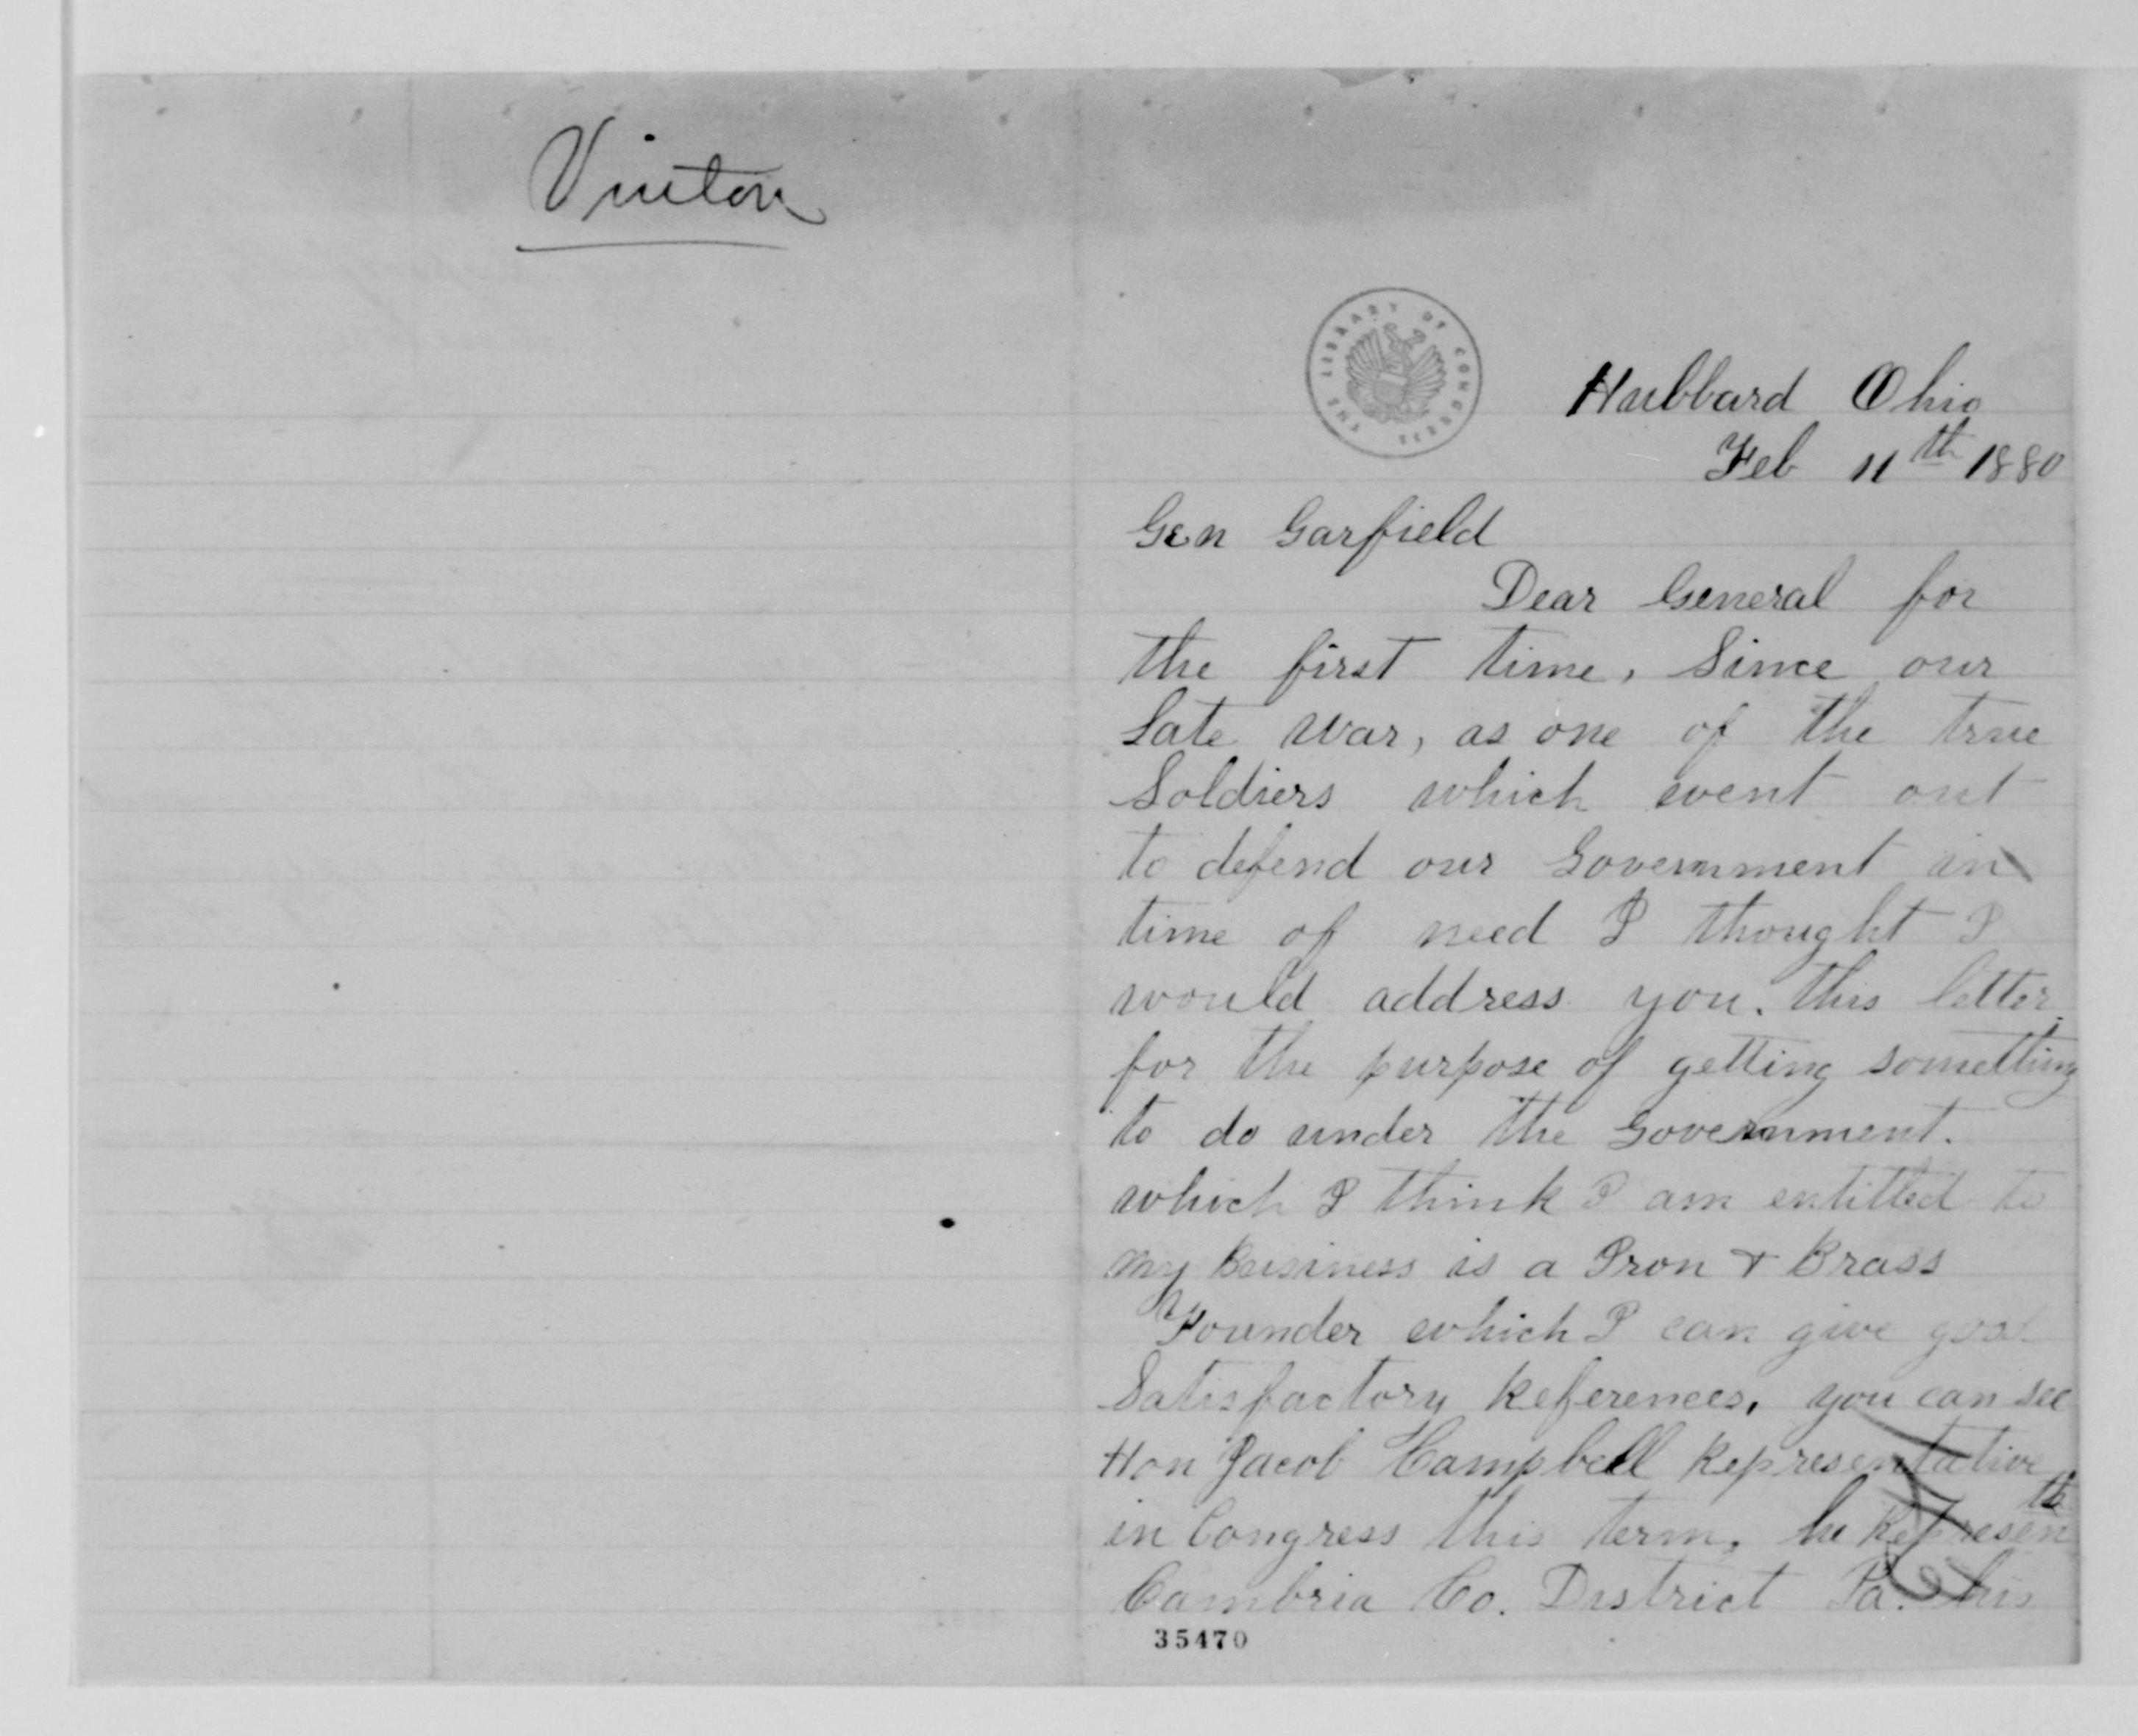 Vinton
THE LIBRARY OF CONGRESS
Hubbard Ohio
Feb 11th 1880
Gen Garfield
Dear General for
the first time, Since our
Late war, as one of the true
Soldiers which went out
to defend our Government in
time of need I thought I
would address you. this letter
for the purpose of getting something
to do under the Government.
which I think I am entitled to
my Buisiness is a Iron & Brass
Founder which I can give good
Satisfactory References, you can see
Hon Jacob Campbell Representative
in Congress this term, he Represents
Cambria Co. District Pa. his
35470